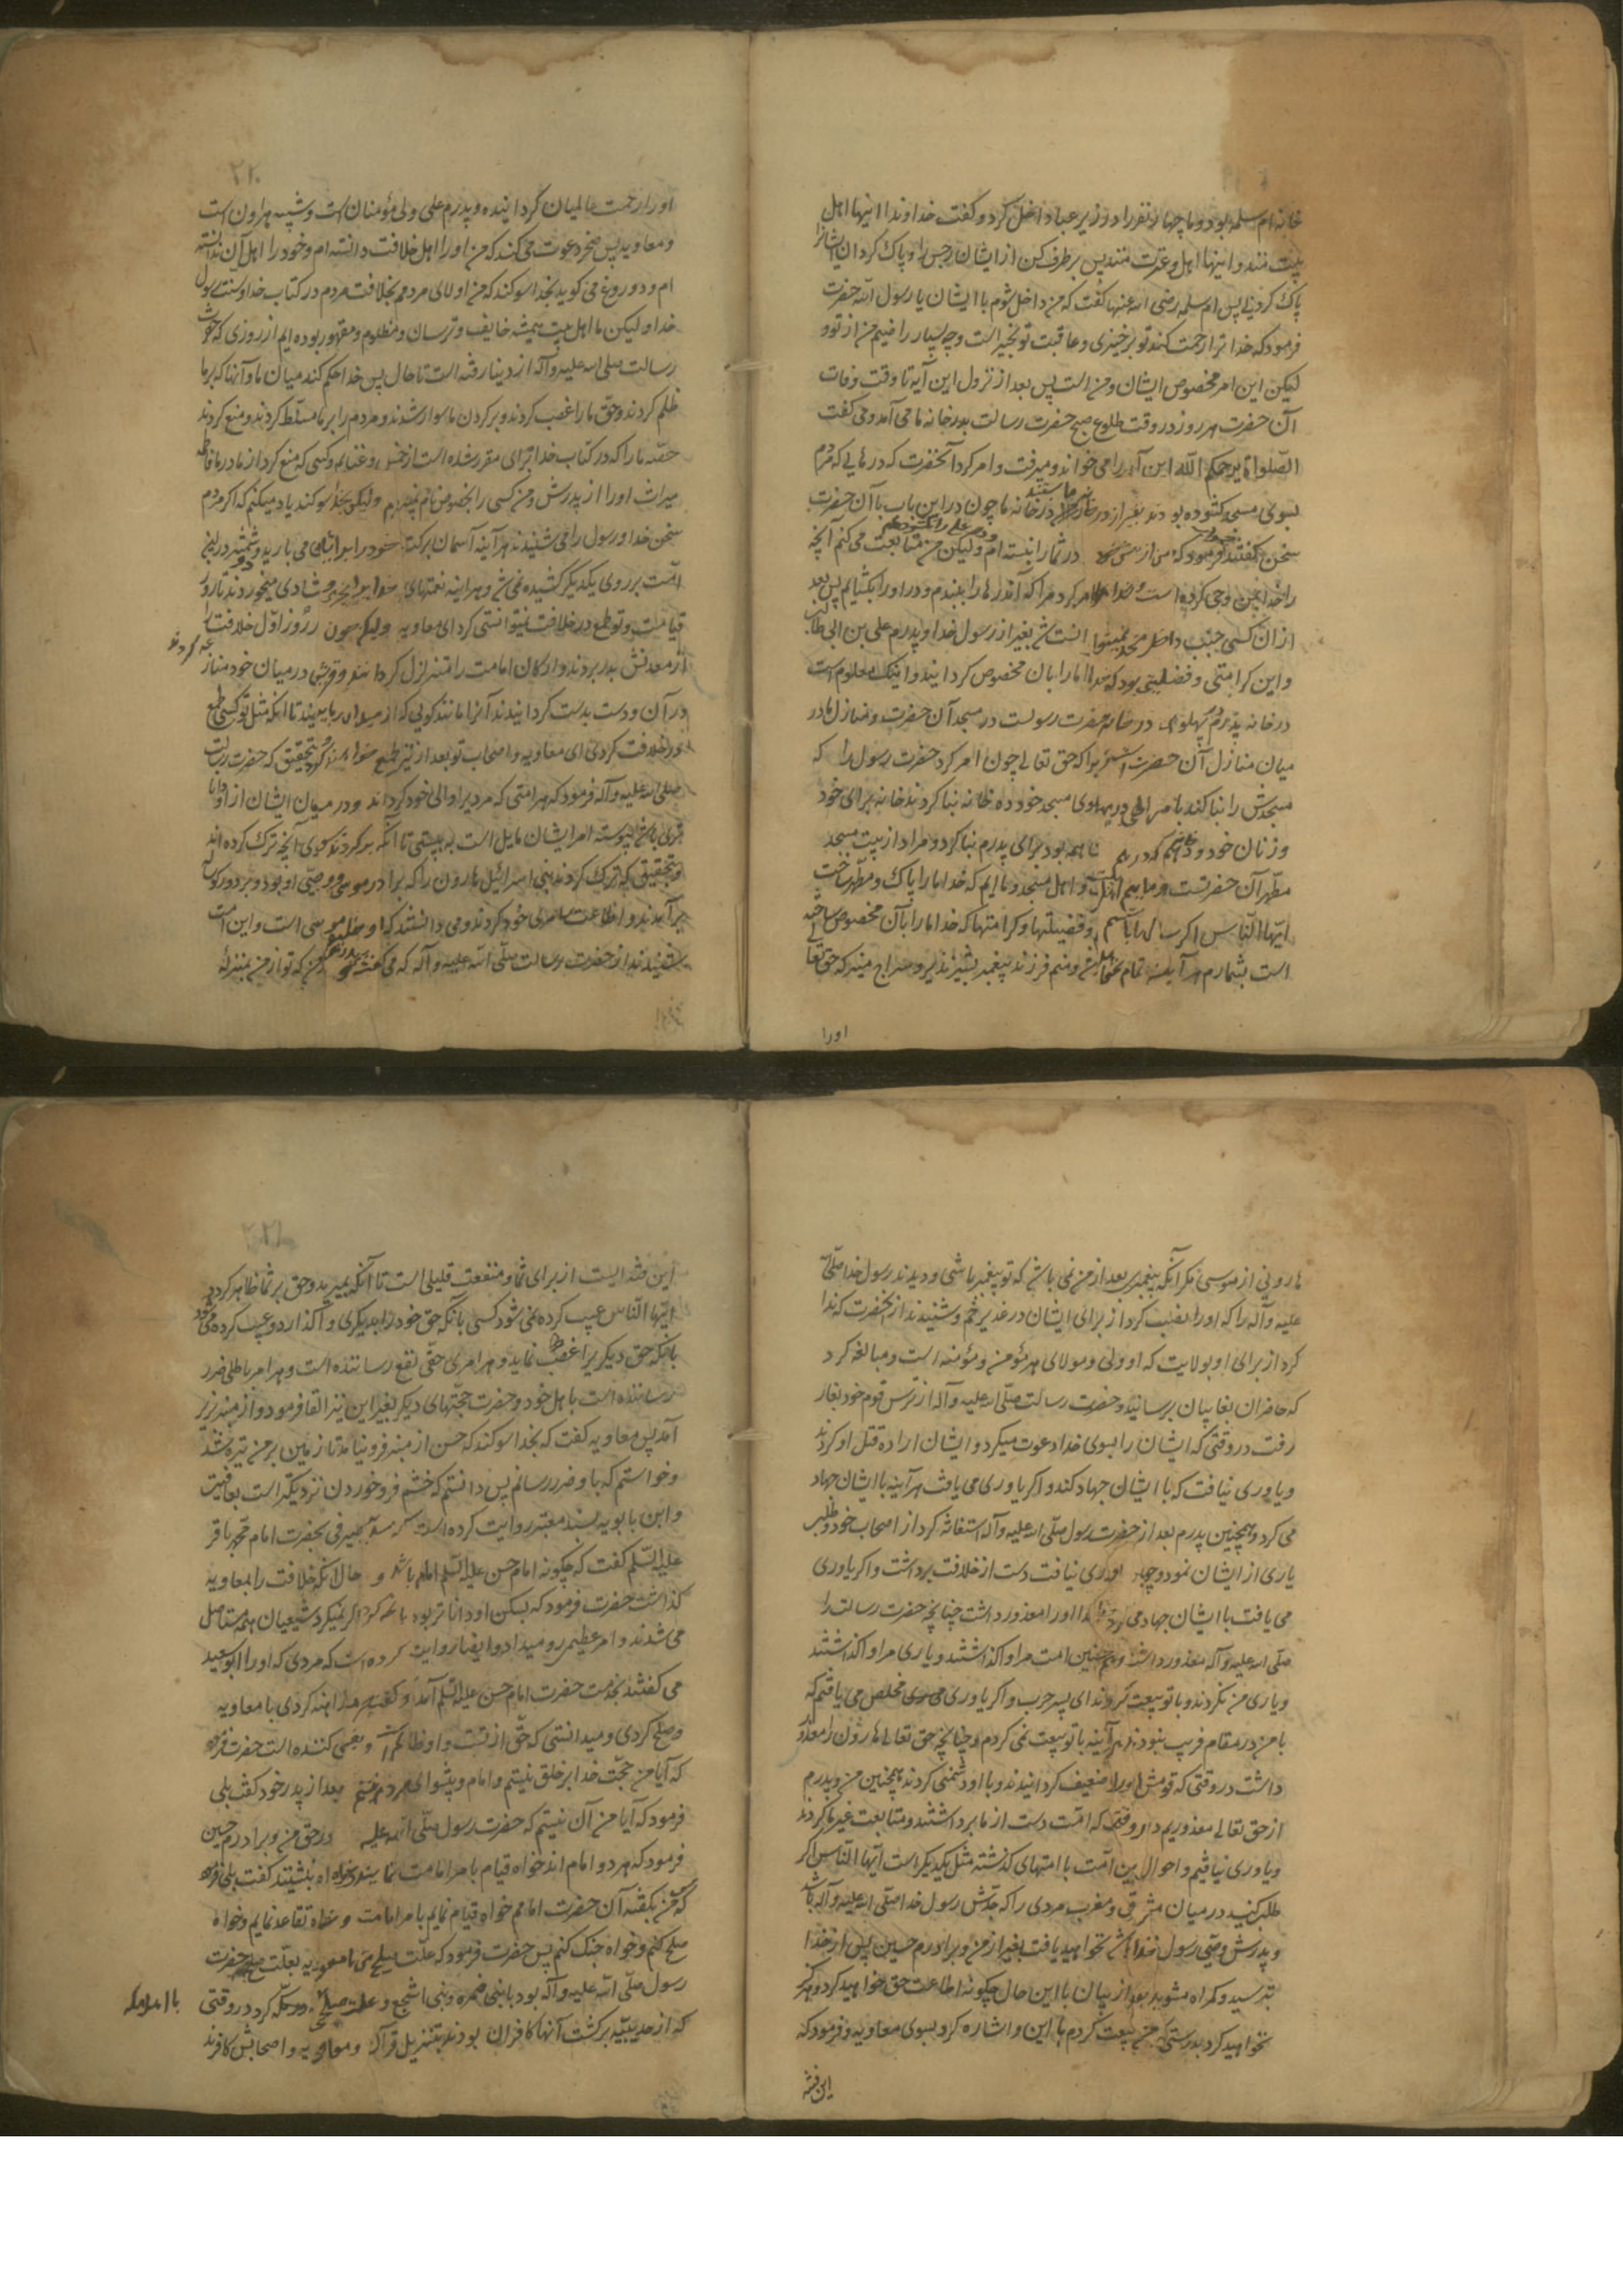 خانه ام سلمه بود و ما چهار نفر را در زیر عبا داخل کرد و گفت خداوندا اینها اهل
بیت منند و اینها اهل و عترت منند پس برطرف کن از ایشان رجس را و پاک کردان ایشانرا
پاک کردنی پس ام سلمه رضی الله عنها گفت که من داخل شوم با ایشان یا رسول الله حضرت
فرمود که خدا ترا رحمت کند تو بر خیری و عاقبت تو بخیر است و چه بسیار راضیم من از تو و
لیکن این امر مخصوص ایشان و من است پس بعد از نزول این آیه تا وقت وفات
آن حضرت هر روز در وقت طلوع صبح حضرت رسالت بدر خانه ما می آمد و می گفت
الصلوة یرحمکم الله این آیه را می خواند و میرفت و امر کرد آنحضرت که درهایی که مردم
بسوی مسجد کشوده بودند بغیر از در خانه ما چون در این باب با آن حضرت
سخن گفتند فرمود که من از در شما را نبسته ام و لیکن من متابعت می کنم آنچه
را خدا بمن وحی کرده است و خدا امر کرد مرا که آندرها را ببندم و در او را بکشایم پس بعد
از ان کسی جنب داخل مسجد نمیتوانست شد بغیر از رسول خدا و پدرم علی بن ابی طالب
و این کرامتی و فضیلتی بود که خدا ما را بان مخصوص کردانید و اینک معلومست
در خانه پدرم پهلوی در خانه حضرت رسولست در مسجد آن حضرت و منازل ما در
میان منازل آن حضرت است زیرا که حق تعالی چون امر کرد حضرت رسول را که
مسجدش را بنا کند بامر الهی در پهلوی مسجد خود ده خانه بنا کرد نه خانه برای خود
و زنان خود و دهم که در بود برای پدرم بنا کرد و مراد از بیت مسجد
مطهر آن حضرتست و ماییم اهل بیت و اهل مسجد و ماایم که خدا ما را پاک و مطهر ساخت
ایها الناس اکر سالها بایستم و فضیلتها و کرامتها که خدا ما را بآن مخصوص ساخته
است بشمارم هر آینه تمام نمیتوانم و منم فرزند پیغمبر بشیر نذیر و سراج منیر که حق تعالی
اورا
۲۲۰
او را رحمت عالمیان کردانیده و پدرم علی ولی مؤمنان است و شبیه هرون است
و معاویه پسر صخر دعوت می کند که من او را اهل خلافت دانسته ام و خود را اهل آن ندانسته
ام و دروغ می کوید بخدا سوکند که من اولای مردمم بخلافت مردم در کتاب خدا و سنت رسول
خدا و لیکن ما اهل بیت همیشه خایف و ترسان و مظلوم و مقهور بوده ایم از روزی که حضرت
رسالت صلی الله علیه و آله از دنیا رفته است تا حال پس خدا حکم کند میان ما و آنها که بر ما
ظلم کردند و حق ما را غصب کردند و بر کردن ما سوار شدند و مردم را بر ما مسلط کردند و منع کردند
حق ما را که در کتاب خدا برای مقرر شده است از خمس و غنایم و کسی که منع کرد از مادر ما فاطمه
میراث او را از پدرش و من کسی را بخصوص نام نمیبرم و لیکن بخدا سوکند یاد میکنم که اکر مردم
سخن خدا و رسول را می شنیدند هر آینه آسمان برکت خود را بر ایشان می بارید و شمشیر در این
امت بر روی یکدیکر کشیده نمی شد و هر آینه نعمتهای خدا را شادی میخوردند تا روز
قیامت و تو طمع در خلافت نمیتوانستی کرد ای معاویه و لیکن چون روز اول خلافت را
از معدنش بدر بردند و ارکان امامت را متزلزل کردانیدند و قریش در میان خود منازعه کردند
در آن و دست بدست کردانیدند آنرا مانند کوئی که از میدان ربایند تا انکه مثل تو کسی طمع
در خلافت کردی ای معاویه و اصحاب تو بعد از تو نیز طمع خواهند کرد و بتحقیق که حضرت رسالت
صلی الله علیه و آله فرمود که هر امتی که مردیرا والی خود کردانند و در میان ایشان از او داناتری
باشد پیوسته امر ایشان مایل است به پستی تا آنکه بر کردند بسوی آنچه ترک کرده اند
و بتحقیق که ترک کردند بنی اسرائیل هارون را که برادر موسی و وصی او بود و بر دور کوساله
بر آمدند و اطاعت سامری خود کردند و می دانستند که او خلیفه موسی است و این امت
شنیدند از حضرت رسالت صلی الله علیه و آله که می گفت پدرم که تو از من بمنزله
هارونی از موسی مکر آنکه پیغمبری بعد از من نمی باشد که تو پیغمبر باشی و دیدند رسول خدا صلی الله
علیه و آله را که او را نصب کرد از برای ایشان در غدیر خم و شنیدند از آنحضرت که ندا
کرد از برای او بولایت که او ولی و مولای هر مؤمن و مؤمنه است و مبالغه کرد
که حاضران بغایبان برسانید و حضرت رسالت صلی الله علیه و آله از ترس قوم خود بغار
رفت در وقتی که ایشان را بسوی خدا دعوت میکرد و ایشان اراده قتل او کردند
و یاوری نیافت که با ایشان جهاد کند و اکر یاوری می یافت هر آینه با ایشان جهاد
می کرد و همچنین پدرم بعد از حضرت رسول صلی الله علیه و آله استغاثه کرد از اصحاب خود و طلب
یاری از ایشان نمود و چون یاوری نیافت دست از خلافت برداشت و اکر یاوری
می یافت با ایشان جهاد می کرد و خدا او را معذور داشت چنانچه حضرت رسالت را
صلی الله علیه و آله معذور داشت و همچنین امت مرا وا کذاشتند و یاری مرا وا کذاشتند
و یاری من نکردند و با تو بیعت کردند ای پسر حرب و اکر یاوری مخلص می یافتم که
با من در مقام فریب نبودند هر آینه با تو بیعت نمی کردم و چنانچه حق تعالی هارون را معذور
داشت در وقتی که قومش او را ضعیف کردانیدند و با او دشمنی کردند همچنین من و پدرم
از حق تعالی معذوریم در وقتی که امت دست از ما برداشتند و متابعت غیر ما کردند
و یاوری نیافتیم و احوال این امت با امتهای گذشته مثل یکدیکر است ایها الناس اکر
طلب کنید در میان مشرق و مغرب مردی را که جدش رسول خدا صلی الله علیه و آله باشد
و پدرش وصی رسول خدا باشد نخواهید یافت بغیر از من و برادرم حسین پس از خدا
بترسید و کمراه مشوید بعد از بیان با این حال چکونه اطاعت حق خواهید کرد و هرکز
نخواهید کرد بدرستی که من بیعت کردم با این و اشاره کرد بسوی معاویه و فرمود که
این فتنه
۲۲۱
این فتنه ایست از برای شما و منفعت قلیلی است تا آنکه بمیرید و حق بر شما ظاهر کردد
ایها الناس عیب کرده نمی شود کسی بآنکه حق خود را بدیکری وا کذارد و عیب کرده می شود
بآنکه حق دیکریرا غصب نماید و هر امری حقی نفع رساننده است و هر امر باطلی ضرر
رساننده است باهل خود و حضرت حجتهای دیکر بغیر این نیز القا فرمود و از منبر بزیر
آمد پس معاویه گفت که بخدا سوکند که حسن از منبر فرو نیامد تا زمین بر من تیره شد
و خواستم که باو ضرر رسانم پس دانستم که خشم فرو خوردن نزدیکتر است بعافیت
و ابن بابویه بسند معتبر روایت کرده است که سدیر صیرفی بحضرت امام محمد باقر
علیه السلام گفت که چکونه امام حسن علیه السلام امام باشد و حال آنکه خلافت را بمعاویه
کذاشت حضرت فرمود که بس کن او داناتر بود اکر نمیکرد شیعیان همه مستاصل
می شدند و امر عظیمی رو میداد و ایضا روایت کرده است که مردی که او را ابو سعید
می گفتند بخدمت حضرت امام حسن علیه السلام آمد و گفت چرا مداهنه کردی با معاویه
و صلح کردی و میدانستی که حق از تست و او ظالم است و بغی کننده است حضرت فرمود
که آیا من حجت خدا بر خلق نیستم و امام و پیشوای مردم نیستم بعد از پدر خود گفت بلی
فرمود که آیا من آن نیستم که حضرت رسول صلی الله علیه در حق من و برادرم حسین
فرمود که هر دو امام اند خواه قیام بامر امامت نمایند و خواه بنشینند گفت بلی فرمود
که من بگفته آن حضرت امامم خواه قیام نمایم بامر امامت و خواه تقاعد نمایم و خواه
صلح کنم و خواه جنک کنم پس حضرت فرمود که علت صلح من با معاویه بعلت صلح حضرت
رسول صلی الله علیه و آله بود با بنی ضمره و بنی اشجع و علت صلح در مکه کرد در وقتی
که از حدیبیه برگشت آنها کافران بودند بتنزیل قرآن و معاویه و اصحابش کافرند
با اهل مکه